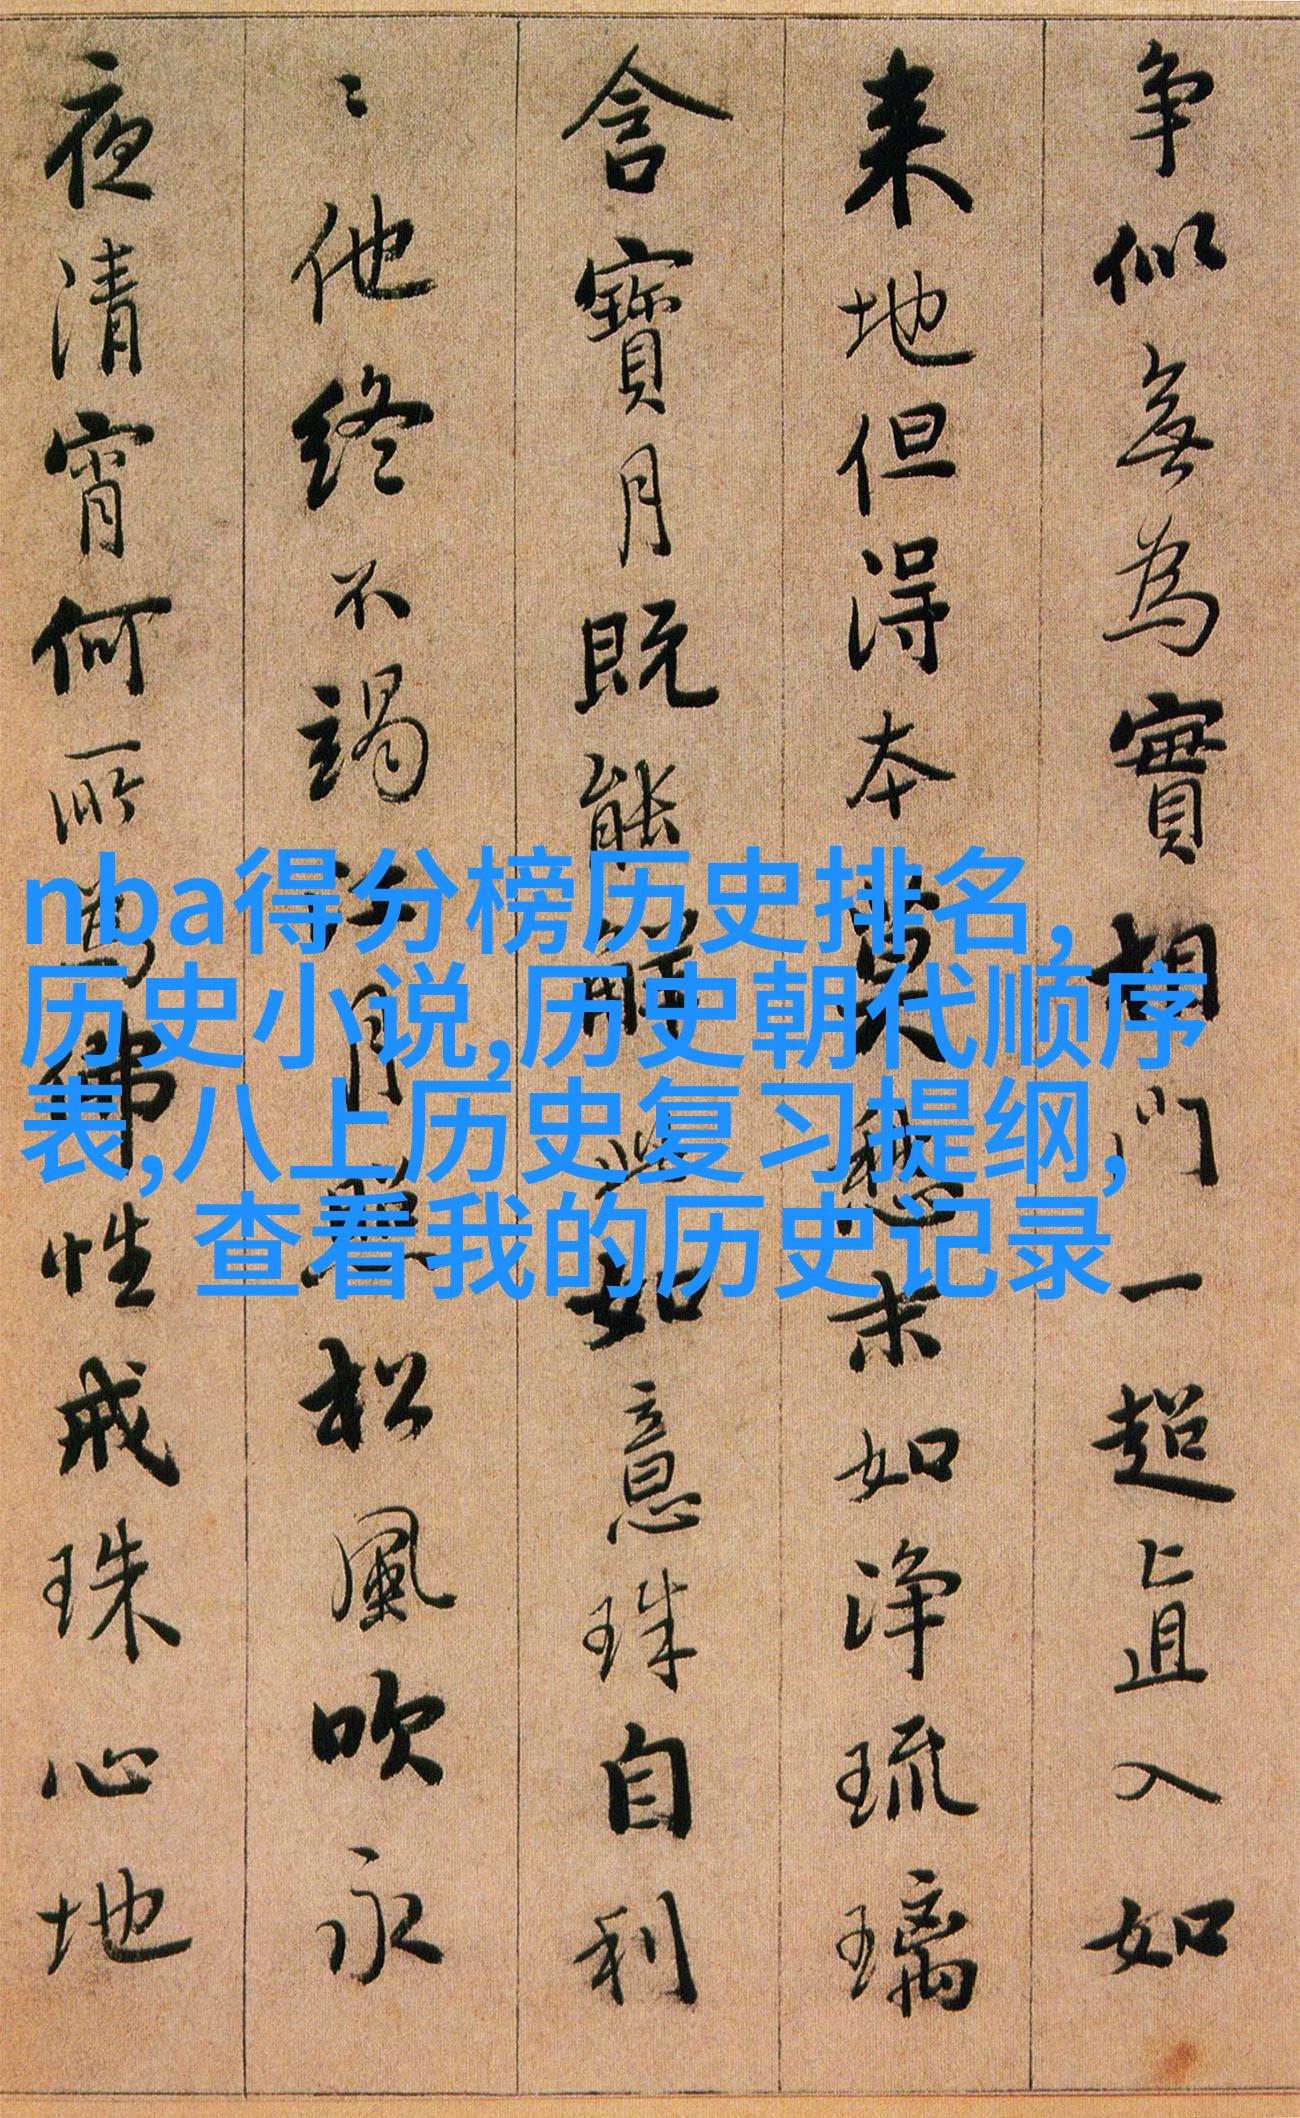 争似無為實相門一超直入如
来地但得本莫愁末如淨琉璃
含寶月既能解此如意珠自利
〻他終不竭江月照松風吹永
夜清宵何所為佛性戒珠心地
nba得分榜历史排名,
历史小说,历史朝代顺序
表,八上历史复习提纲,
查看我的历史记录